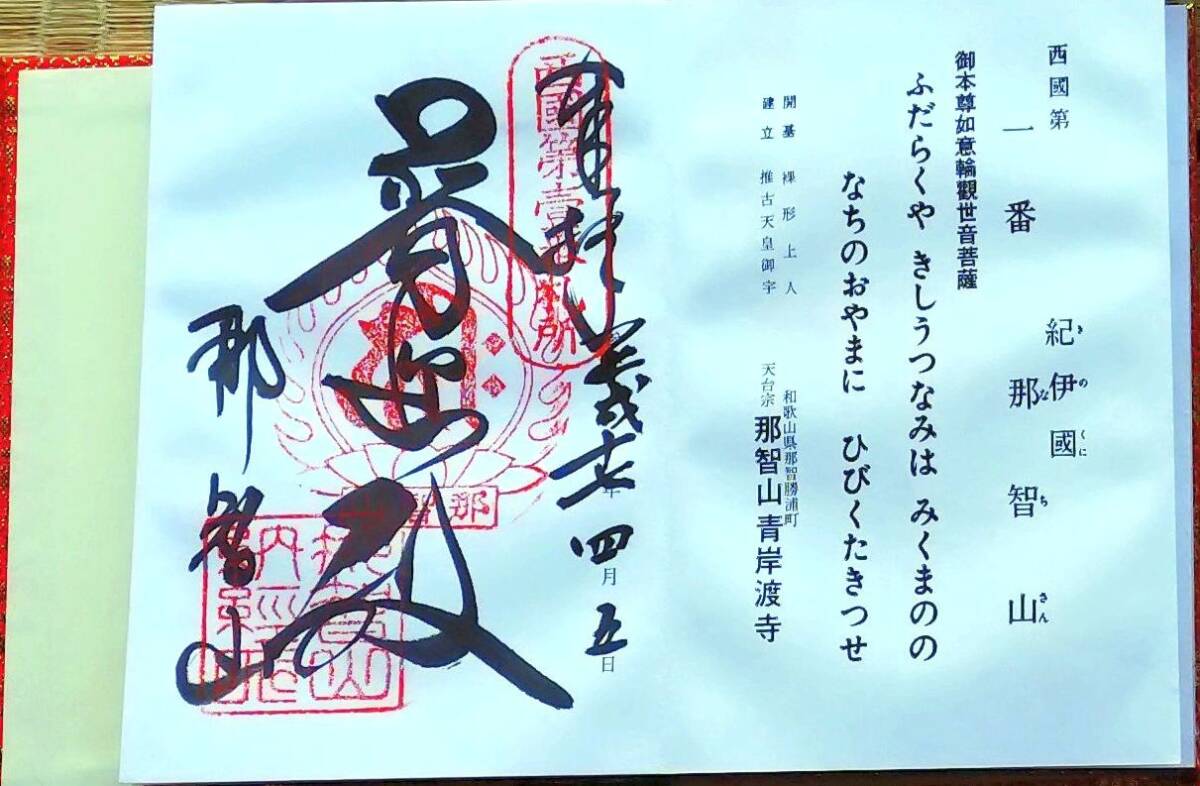 西國第
一番 紀伊國那智山
きのくになちさん
御本尊如意輪觀世音菩薩
ふだらくや きしうつなみは みくまのの
なちのおやまに ひびくたきつせ
開基 裸形上人
建立 推古天皇御宇
和歌山県那智勝浦町
天台宗 那智山青岸渡寺
奉拝
年四月五日
西國第壹番札所
普照殿
那智山
那智山